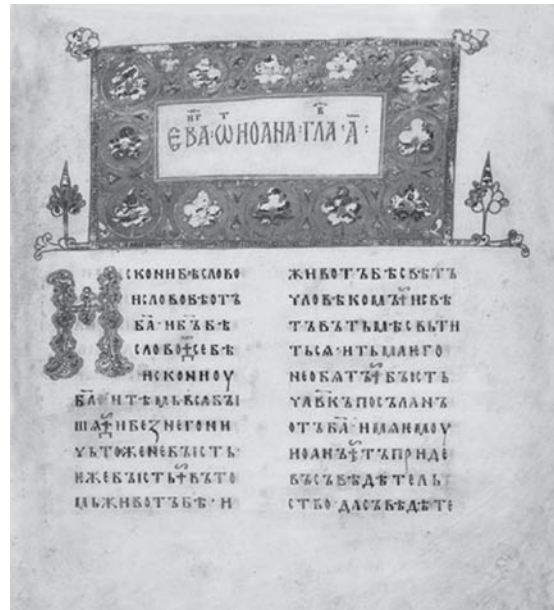 ЄВА ѾИОАНА·ГЛА·А҃:
ИСКОНИБѢСЛОВО
ИСЛОВОБѢОТЪ
Б҃А·ИБ҃ЪБѢ
СЛОВО·СЕБѢ
ИСКОНИОУ
Б҃А·ИТѢМЬВСꙖБꙐ
ШѦ·ИБЕꙁНЕГОНИ
ЧЬТОЖЕНЕБꙐСТЬ·
ИЖЕБꙐСТЬ·ВЪТО
МЬЖИВОТЪБѢ·И
ЖИВОТЪБѢСВѢТЪ
ЧЛОВѢКОМЪ·ИСВѢ
ТЪВЪТЬМѢСВЬТИ
ТЬСѦ·ИТЬМАѤГО
НЕОБѦТЪ·БꙐСТЬ
ЧЛВКЪПОСЪЛАНЪ
ОТЪБ҃А·ИМѦѤМОУ
ИОАНЪ·ТЪПРИДЕ
ВЪСЪВѢДѢТЕЛЬ
СТВО·ДАСЪВѢДѢТЕ